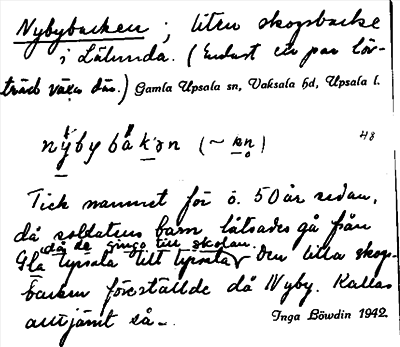 Nybybacken; liten skogsbacke
i Lålunda. (Endast en par löv-
träd växa där.) Gamla Upsala sn, Vaksala hd, Upsala l.
nybybakən (~ kn)
48
Fick namnet för ö. 50 år sedan,
då soldatens barn låtsades gå från
då de gingo till skolan.
Gla Upsala till Upsala. Den lilla skogs-
backen föreställde då Nyby. Kallas
alltjämt så.
Inga Böwdin 1942.